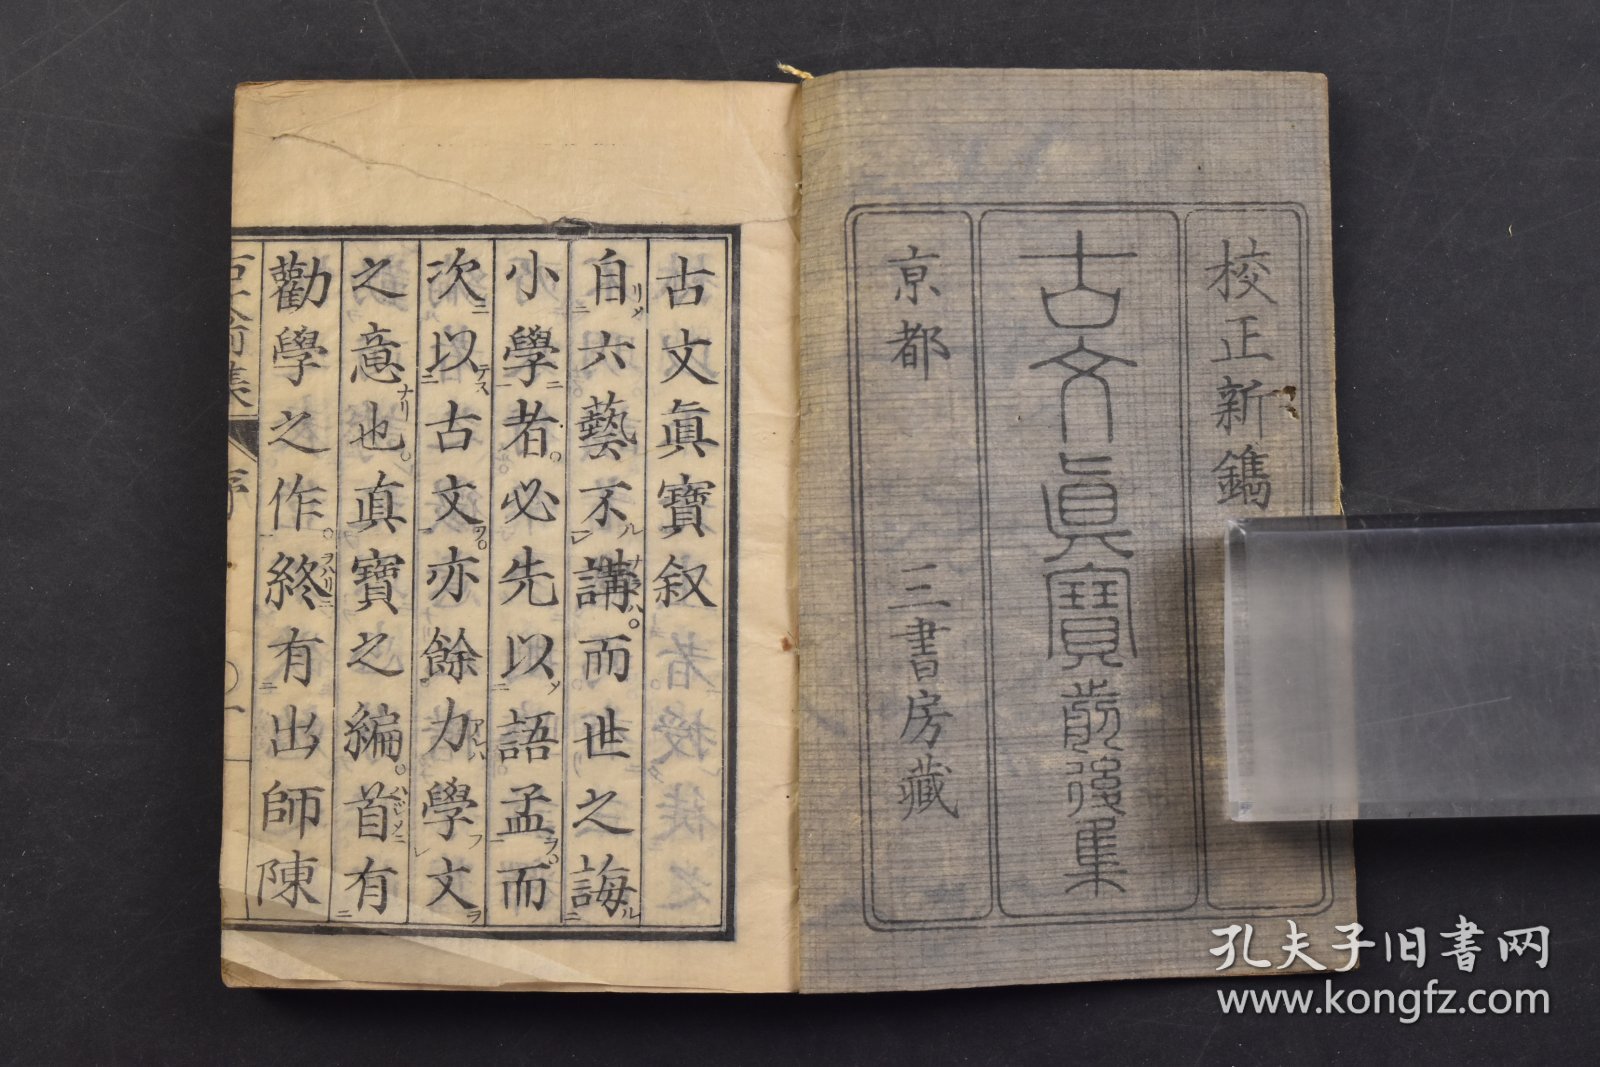 校正新鐫
古文眞寶前後集
京都 三書房藏
古文眞寶叙
自六藝不講而世之誨
小學者必先以語孟而
次以古文亦餘力學文
之意也真寶之編首有
勸學之作終有出師陳
序
孔夫子旧书网
www.kongfz.com